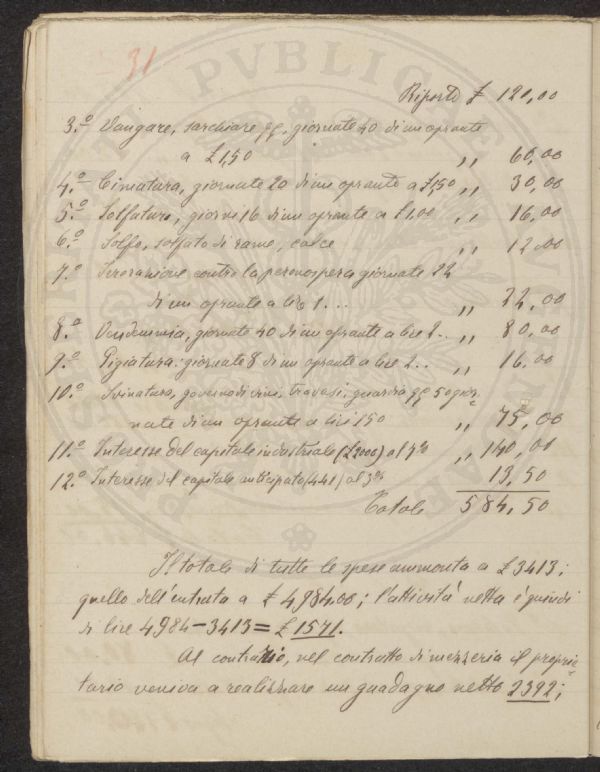 31
Riporto £ 120,00
3.º Vangare, sarchiare ǫǫ, giornate 40 di un oprante
a £ 1,50 ,, 60,00
4.º Cimatura, giornate 20 di un oprante a £ 1,50 ,, 30,00
5.º Solfature, giorni 16 di un oprante a £ 1.00 ,, 16,00
6.º Solfo, solfato di rame, calce ,, 12,00
7.º Irrorazione contro la peronospera giornate 22
di un oprante a lire 1... ,, 22,00
8.º Vendemmia, giornate 40 di un oprante a lire 2.. ,, 80,00
9.º Pigiatura: giornate 8 di un oprante a lire 2.. ,, 16,00
10.º Svinatura, governo di vini, travasi, guardia 50 gior=
nate di un oprante a lire 1 50 ,, 75,00
11.º Interesse del capitale industriale (£ 2000) al 7% ,, 140,00
12.º Interesse del capitale anticipato (441) al 3% 13,50
Totale 584,50
Il totale di tutte le spese ammonta a £ 3413;
quello dell'entrata a £ 4984.00; l'attività netta è quindi
di lire 4984-3413= £ 1571.
Al contrario, nel contratto di mezzeria il proprie=
tario veniva a realizzare un guadagno netto 2392;
PVBLICAE